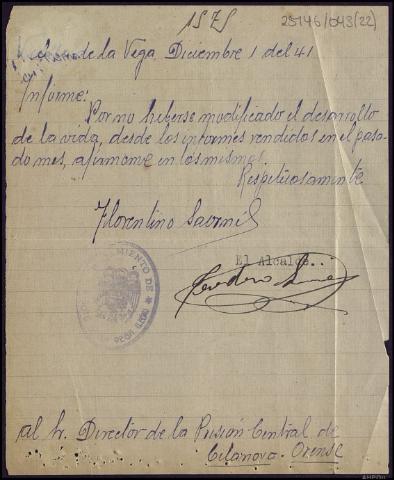 1575
25146/043(22)
de la Vega Diciembre 1 del 41
Informe:
Por no heberse modificado el desarrollo
de la vida, desde los informes rendidos en el pasa-
do mes, afirmome en los mismos.
Respetuosamente
Florentino
El Alcalde..
AYUNTAMIENTO DE
al Sr. Director de la Prisión Central de
Celanova. Orense
AHPOu